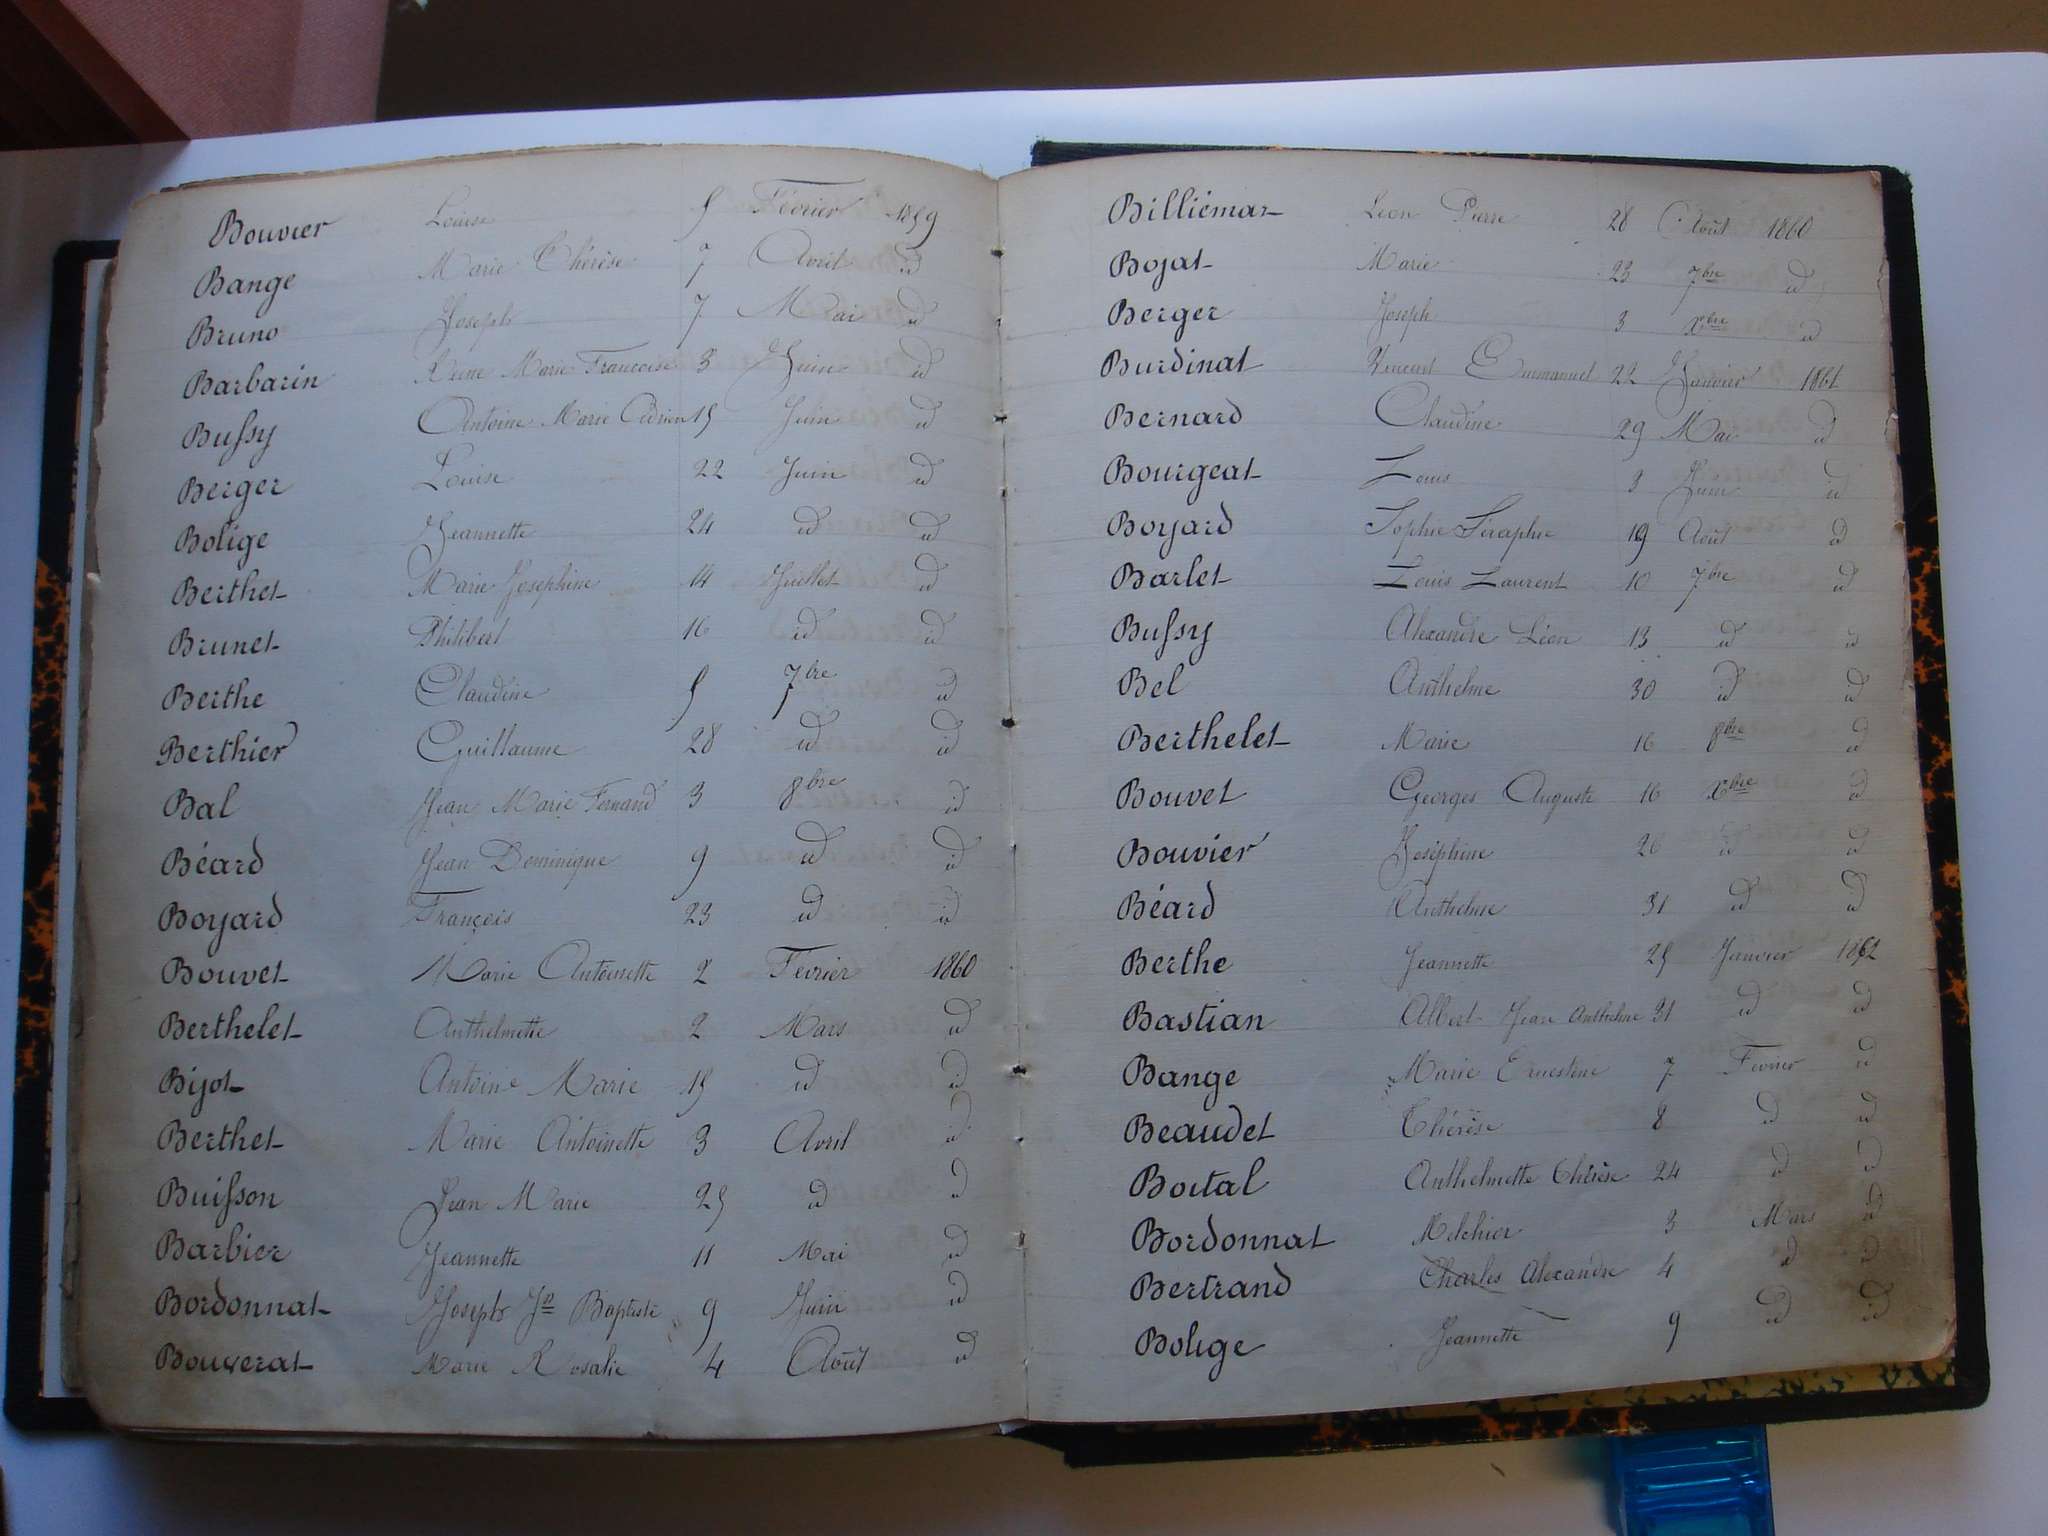 Bouvier Louise 5 Février 1859
Bange Marie Thérèse 7 Avril id
Bruno Joseph 7 Mai id
Barbarin Reine Marie Francoise 3 Juin id
Bussy Antoine Marie Adrien 15 Juin id
Berger Louise 22 Juin id
Bolige Jeannette 24 id id
Berthet Marie Joséphine 14 Juillet id
Brunet Philibert 16 id id
Berthe Claudine 5 7bre id
Berthier Guillaume 28 id id
Bal Jean Marie Fernand 3 8bre id
Béard Jean Dominique 9 id id
Boyard François 23 id id
Bouvet Marie Antoinette 2 Février 1860
Berthelet Anthelmette 2 Mars id
Bijot Antoine Marie 15 id id
Berthet Marie Antoinette 3 Avril id
Buisson Jean Marie 25 id id
Barbier Jeannette 11 Mai id
Bordonnat Joseph Jn Baptiste 9 Juin id
Bouverat Marie Rosalie 4 Août id
Billiemaz Leon Pierre 28 Août 1860
Bojat Marie 23 7bre id
Berger Joseph 3 Xbre id
Burdinat Vincent Emmanuel 22 Janvier 1861
Bernard Claudine 29 Mai id
Bourgeat Louis 3 Juin id
Boyard Sophie Séraphie 19 Août id
Barlet Louis Laurent 10 7bre id
Bussy Alexandre Léon 13 id id
Bel Anthelme 30 id id
Berthelet Marie 16 8bre id
Bouvet Georges Auguste 16 Xbre id
Bouvier Joséphine 26 id id
Béard Anthelme 31 id id
Berthe Jeannette 25 Janvier 1862
Bastian Albert Jean Anthelme 31 id id
Bange Marie Ernestine 7 Février id
Beaudet Thérèse 8 id id
Boital Anthelmette Thérèse 24 id id
Bordonnat Melchior 3 Mars id
Bertrand Charles Alexandre 4 id id
Bolige Jeannette 9 id id